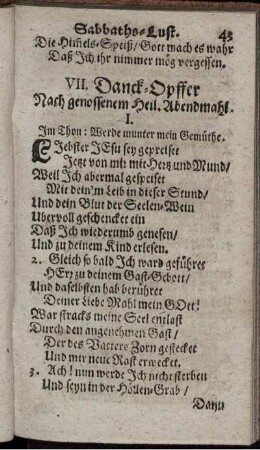 Sabbaths-Lust. 43
Die Him̃els-Speiß/ Gott mach es wahr
Daß Jch ihr nimmer mög vergessen.
VII. Danck-Opffer
Nach genossenem Heil. Abendmahl.
I.
Jm Thon: Werde munter mein Gemüthe.
LIebster JEsu sey gepreiset
Jetzt von mir mit Hertz und Mund/
Weil Jch abermal gespeiset
Mit dein'm Leib in dieser Stund/
Und dein Blut der Seelen-Wein
Ubervoll geschencket ein
Daß Jch wiederumb genesen/
Und zu deinem Kind erlesen.
2. Gleich so bald Jch ward geführet
HErr zu deinem Gast-Gebott/
Und daselbsten hab berühret
Deiner Liebe Mahl mein GOtt!
War stracks meine Seel entlast
Durch den angenehmen Gast/
Der des Vatters Zorn gestecket
Und mir neue Rast erwecket.
3. Ach! nun werde Jch nicht sterben
Und seyn in der Höllen-Grab/
Dann